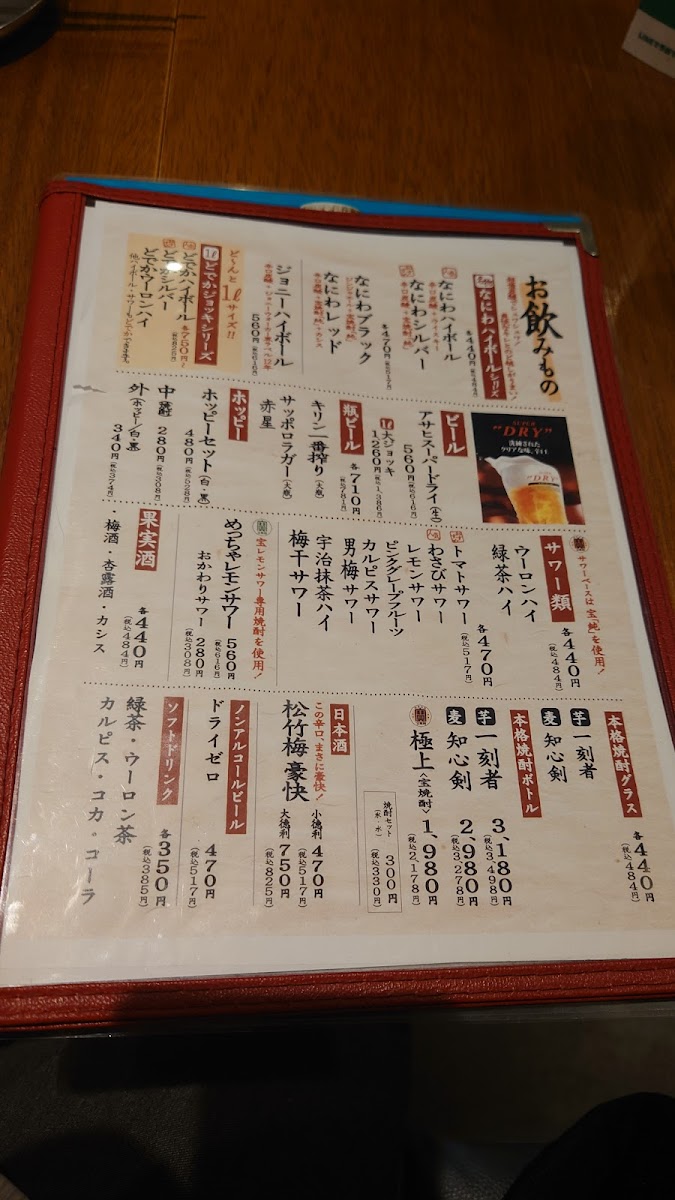 お飲みもの
なにわハイボールシリーズ
各440円(税込484円)
なにわハイボール
なにわシルバー
各470円(税込517円)
なにわブラック
なにわレッド
ジョニーハイボール
560円(税込616円)
ど〜んと1ℓサイズ!!
1ℓ どでかジョッキシリーズ
どでかハイボール
どでかシルバー
各750円
(税込825円)
どでかウーロンハイ
他ハイボール・サワーもどでかできます。
SUPER
"DRY"
洗練された
クリアな味、辛口。
ビール
アサヒスーパードライ(生)
560円(税込616円)
1ℓ大ジョッキ
1,260円(税込1,386円)
瓶ビール
各710円
(税込781円)
キリン一番搾り(大瓶)
サッポロラガー(大瓶)
赤星
ホッピー
ホッピーセット(白・黒)
480円(税込528円)
中(焼酎)
280円(税込308円)
外(ホッピー/白・黒)
340円(税込374円)
サワーベースは宝「純」を使用!
サワー類
各440円
(税込484円)
ウーロンハイ
緑茶ハイ
各470円
(税込517円)
トマトサワー
わさびサワー
レモンサワー
ピンクグレープフルーツ
カルピスサワー
男梅サワー
宇治抹茶ハイ
梅干サワー
宝レモンサワー専用焼酎を使用!
めっちゃレモンサワー 560円
(税込616円)
おかわりサワー 280円
(税込308円)
果実酒
各440円
(税込484円)
・梅酒・杏露酒・カシス
本格焼酎グラス
各440円
(税込484円)
芋 一刻者
麦 知心剣
本格焼酎ボトル
芋 一刻者 3,180円
(税込3,498円)
麦 知心剣 2,980円
(税込3,278円)
極上<宝焼酎> 1,980円
(税込2,178円)
焼酎セット
(氷・水)
300円
(税込330円)
日本酒
この辛口、まさに豪快!
松竹梅 豪快
小徳利 470円
(税込517円)
大徳利 750円
(税込825円)
ノンアルコールビール
ドライゼロ 470円
(税込517円)
ソフトドリンク
各350円
(税込385円)
緑茶・ウーロン茶
カルピス・コカ・コーラ